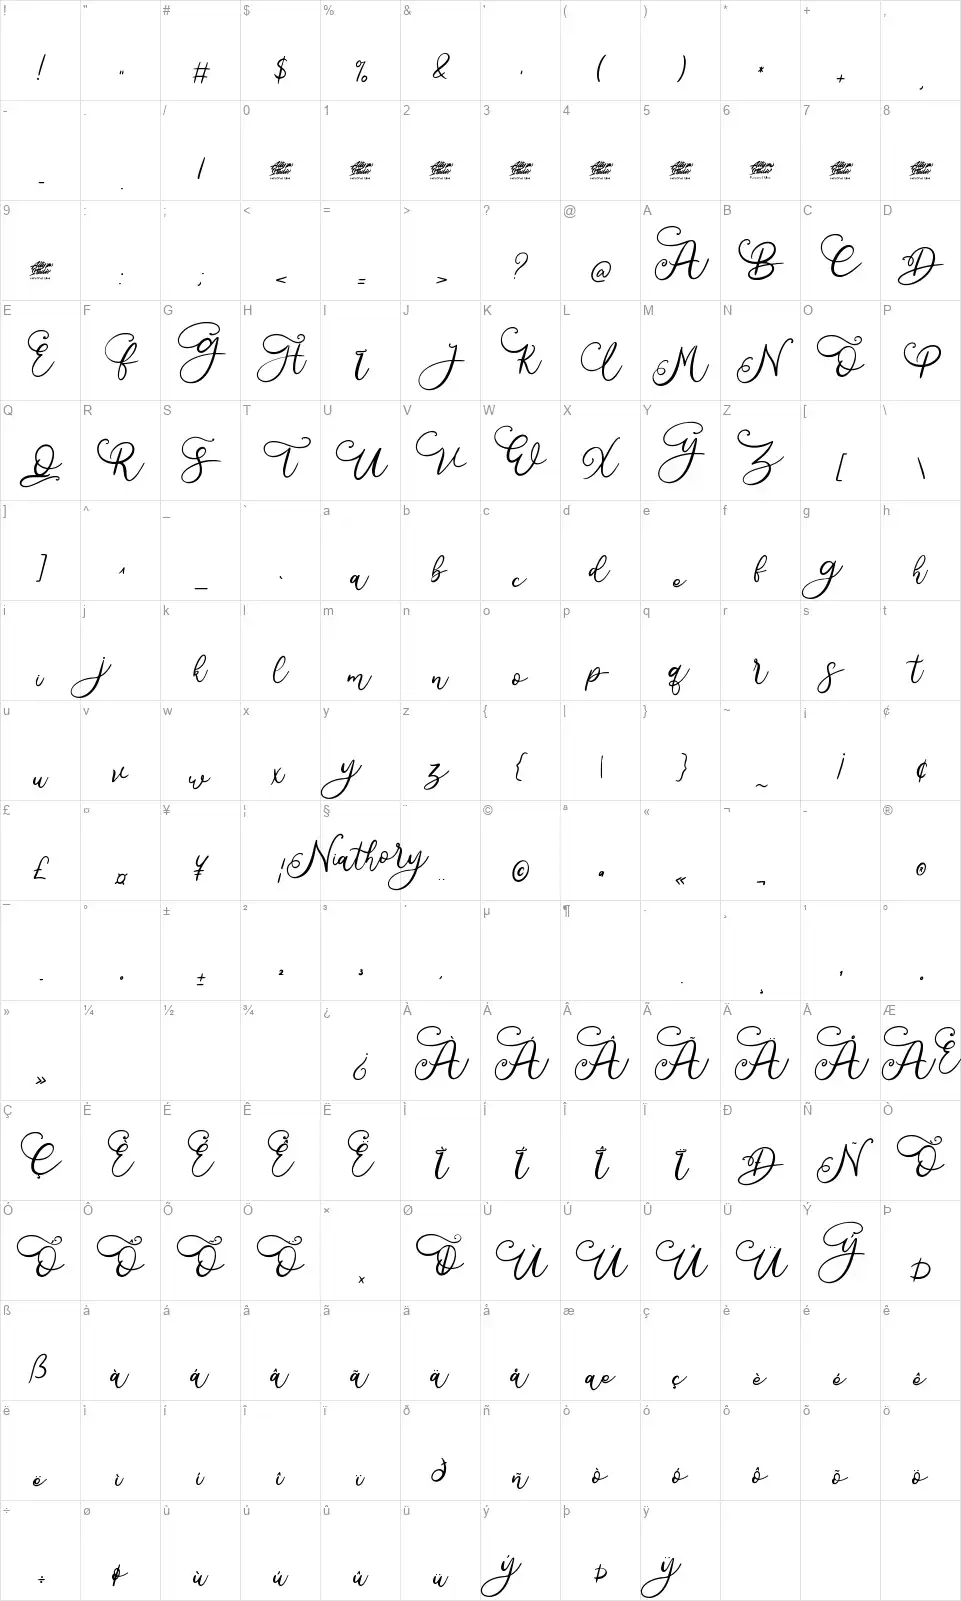 ! " # $ % & ' ( ) * + ,
! " # $ % & ' ( ) * + ,
- . / 0 1 2 3 4 5 6 7 8
- . /
9 : ; < = > ? @ A B C D
: ; < = > ? @ A B C D
E F G H I J K L M N O P
E F G H I J K L M N O P
Q R S T U V W X Y Z [ \
Q R S T U V W X Y Z [ \
] ^ _ ` a b c d e f g h
] ^ _ ` a b c d e f g h
i j k l m n o p q r s t
i j k l m n o p q r s t
u v w x y z { | } ~ ¡ ¢
u v w x y z { | } ~ ¡ ¢
£ ¤ ¥ ¦ § ¨ © ª « ¬ - ®
£ ¤ ¥ ¦ Niathory ¨ © ª « ¬ ®
¯ ° ± ² ³ ´ µ ¶ · ¸ ¹ º
¯ ° ± ² ³ ´ · ¸ ¹ º
» ¼ ½ ¾ ¿ À Á Â Ã Ä Å Æ
» ¿ À Á Â Ã Ä Å Æ
Ç È É Ê Ë Ì Í Î Ï Ð Ñ Ò
Ç È É Ê Ë Ì Í Î Ï Ð Ñ Ò
Ó Ô Õ Ö × Ø Ù Ú Û Ü Ý Þ
Ó Ô Õ Ö × Ø Ù Ú Û Ü Ý Þ
ß à á â ã ä å æ ç è é ê
ß à á â ã ä å æ ç è é ê
ë ì í î ï ð ñ ò ó ô õ ö
ë ì í î ï ð ñ ò ó ô õ ö
÷ ø ù ú û ü ý þ ÿ
÷ ø ù ú û ü ý þ ÿ